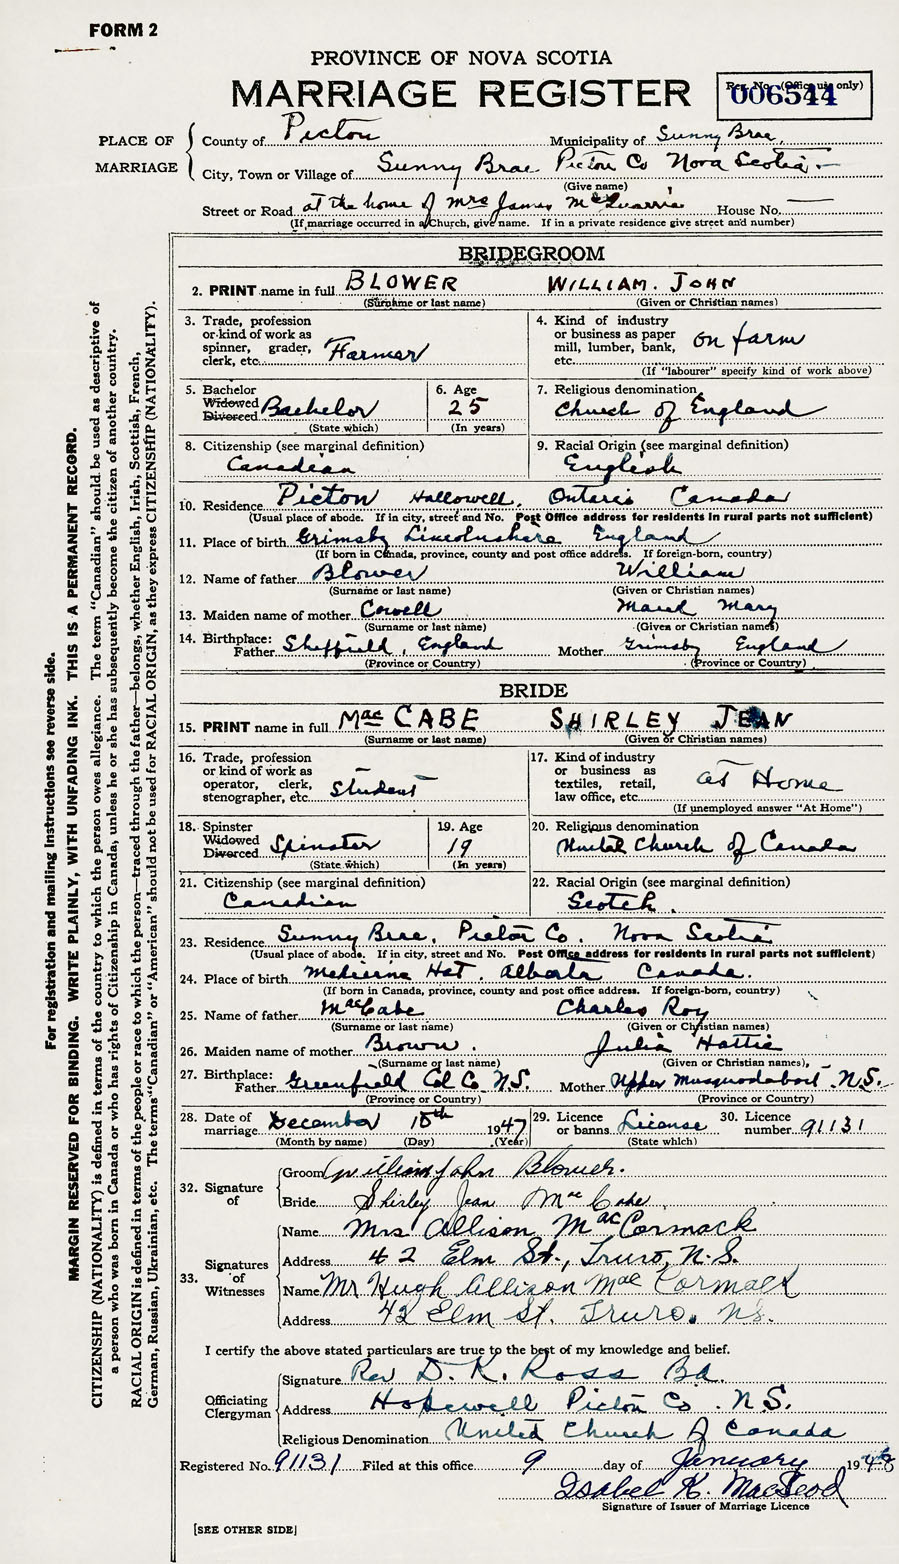 FORM 2
PROVINCE OF NOVA SCOTIA
MARRIAGE REGISTER
Reg. No. (Office use only)
006544
PLACE OF MARRIAGE
County of Picton Municipality of Sunny Brae
City, Town or Village of Sunny Brae Picton Co Nova Scotia
(Give name)
Street or Road at the home of Mrs James House No. —
(If marriage occurred in a Church, give name. If in a private residence give street and number)
BRIDEGROOM
2. PRINT name in full BLOWER WILLIAM. JOHN
(Surname or last name) (Given or Christian names)
3. Trade, profession or kind of work as spinner, grader, clerk, etc. Farmer
4. Kind of industry or business as paper mill, lumber, bank, etc. on farm
(If "labourer" specify kind of work above)
5. Bachelor Widowed Divorced Bachelor
(State which)
6. Age 25
(In years)
7. Religious denomination
Church of England
8. Citizenship (see marginal definition)
Canadian
9. Racial Origin (see marginal definition)
English
10. Residence Picton Hallowell, Ontario Canada
(Usual place of abode. If in city, street and No. Post Office address for residents in rural parts not sufficient)
11. Place of birth Grimsby Lincolnshire England
(If born in Canada, province, county and post office address. If foreign-born, country)
12. Name of father Blower William
(Surname or last name) (Given or Christian names)
13. Maiden name of mother Cowell Maud Mary
(Surname or last name) (Given or Christian names)
14. Birthplace: Father Sheffield, England Mother Grimsby England
(Province or Country) (Province or Country)
BRIDE
15. PRINT name in full MacCABE SHIRLEY JEAN
(Surname or last name) (Given or Christian names)
16. Trade, profession or kind of work as operator, clerk, stenographer, etc. Student
17. Kind of industry or business as textiles, retail, law office, etc. at Home
(If unemployed answer "At Home")
18. Spinster Widowed Divorced Spinster
(State which)
19. Age 19
(In years)
20. Religious denomination
United Church of Canada
21. Citizenship (see marginal definition)
Canadian
22. Racial Origin (see marginal definition)
Scotch.
23. Residence Sunny Brae, Picton Co. Nova Scotia
(Usual place of abode. If in city, street and No. Post Office address for residents in rural parts not sufficient)
24. Place of birth Medicine Hat. Alberta Canada.
(If born in Canada, province, county and post office address. If foreign-born, country)
25. Name of father MacCabe Charles Roy
(Surname or last name) (Given or Christian names)
26. Maiden name of mother Brown. Julia Hattie
(Surname or last name) (Given or Christian names)
27. Birthplace: Father Greenfield Col Co N.S. Mother Upper Musquodaboit. N.S.
(Province or Country) (Province or Country)
28. Date of marriage December 10th 1947
(Month by name) (Day) (Year)
29. Licence or banns. License
(State which)
30. Licence number 91131
32. Signature of
Groom William John Blower.
Bride Shirley Jean MacCabe
33. Signatures of Witnesses
Name Mrs Allison MacCormack
Address 42 Elm St., Truro, N.S.
Name Mr Hugh Allison MacCormack
Address 42 Elm St. Truro. N.S.
I certify the above stated particulars are true to the best of my knowledge and belief.
Officiating Clergyman
Signature Rev D. K. Ross Bd.
Address Hopewell Picton Co. N.S.
Religious Denomination United Church of Canada
Registered No. 91131 Filed at this office 9 day of January 1948
Isabel K. MacLeod
Signature of Issuer of Marriage Licence
[SEE OTHER SIDE]
For registration and mailing instructions see reverse side.
MARGIN RESERVED FOR BINDING. WRITE PLAINLY, WITH UNFADING INK. THIS IS A PERMANENT RECORD.
CITIZENSHIP (NATIONALITY) is defined in terms of the country to which the person owes allegiance. The term "Canadian" should be used as descriptive of
a person who was born in Canada or who has rights of Citizenship in Canada, unless he or she has subsequently become the citizen of another country.
RACIAL ORIGIN is defined in terms of the people or race to which the person—traced through the father—belongs, whether English, Irish, Scottish, French,
German, Russian, Ukrainian, etc. The terms "Canadian" or "American" should not be used for RACIAL ORIGIN, as they express CITIZENSHIP (NATIONALITY).